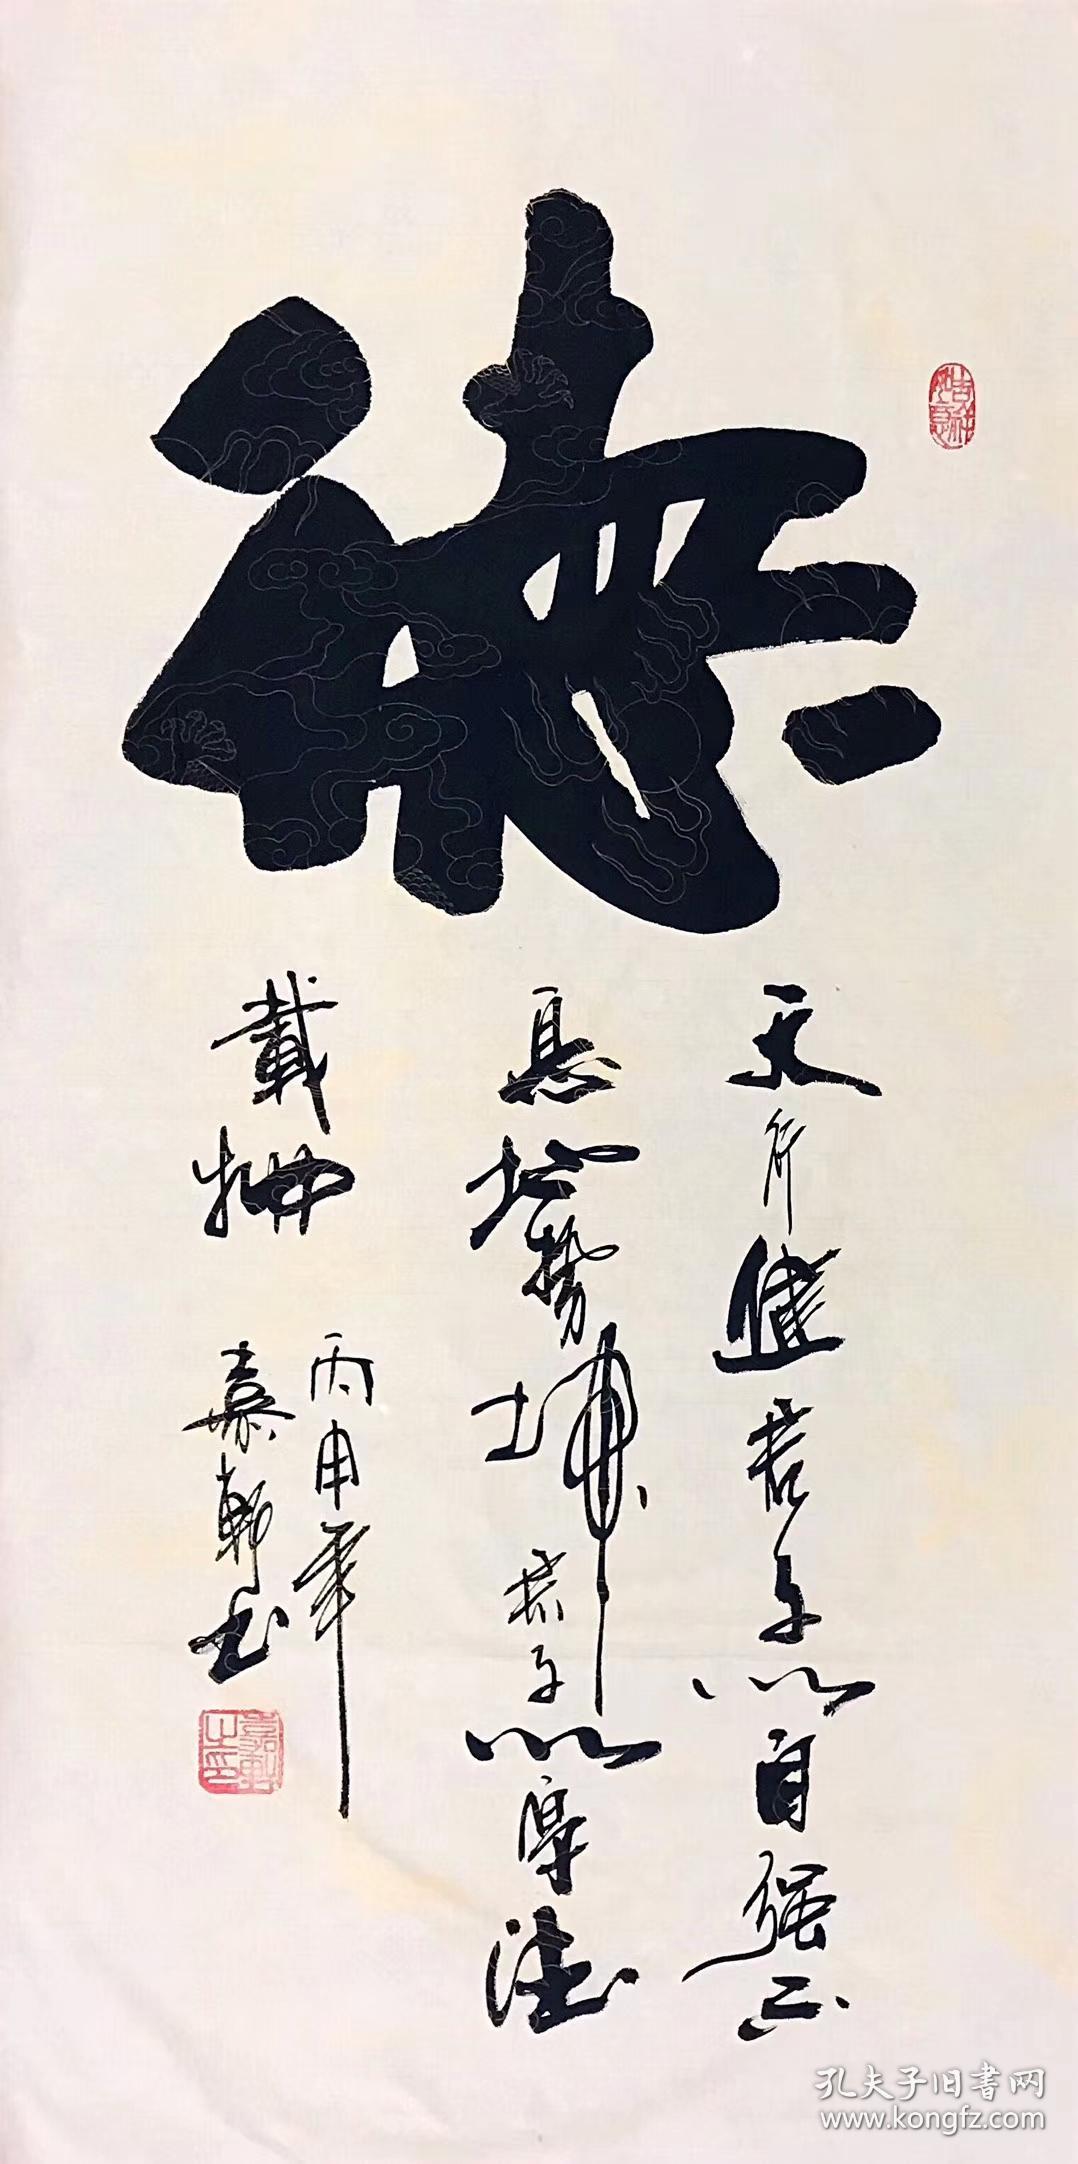 德
吉祥如意
天行健君子以自强不
息地势坤君子以厚德
载物
丙申年
嘉轩书
嘉轩之印
孔夫子旧书网
www.kongfz.com